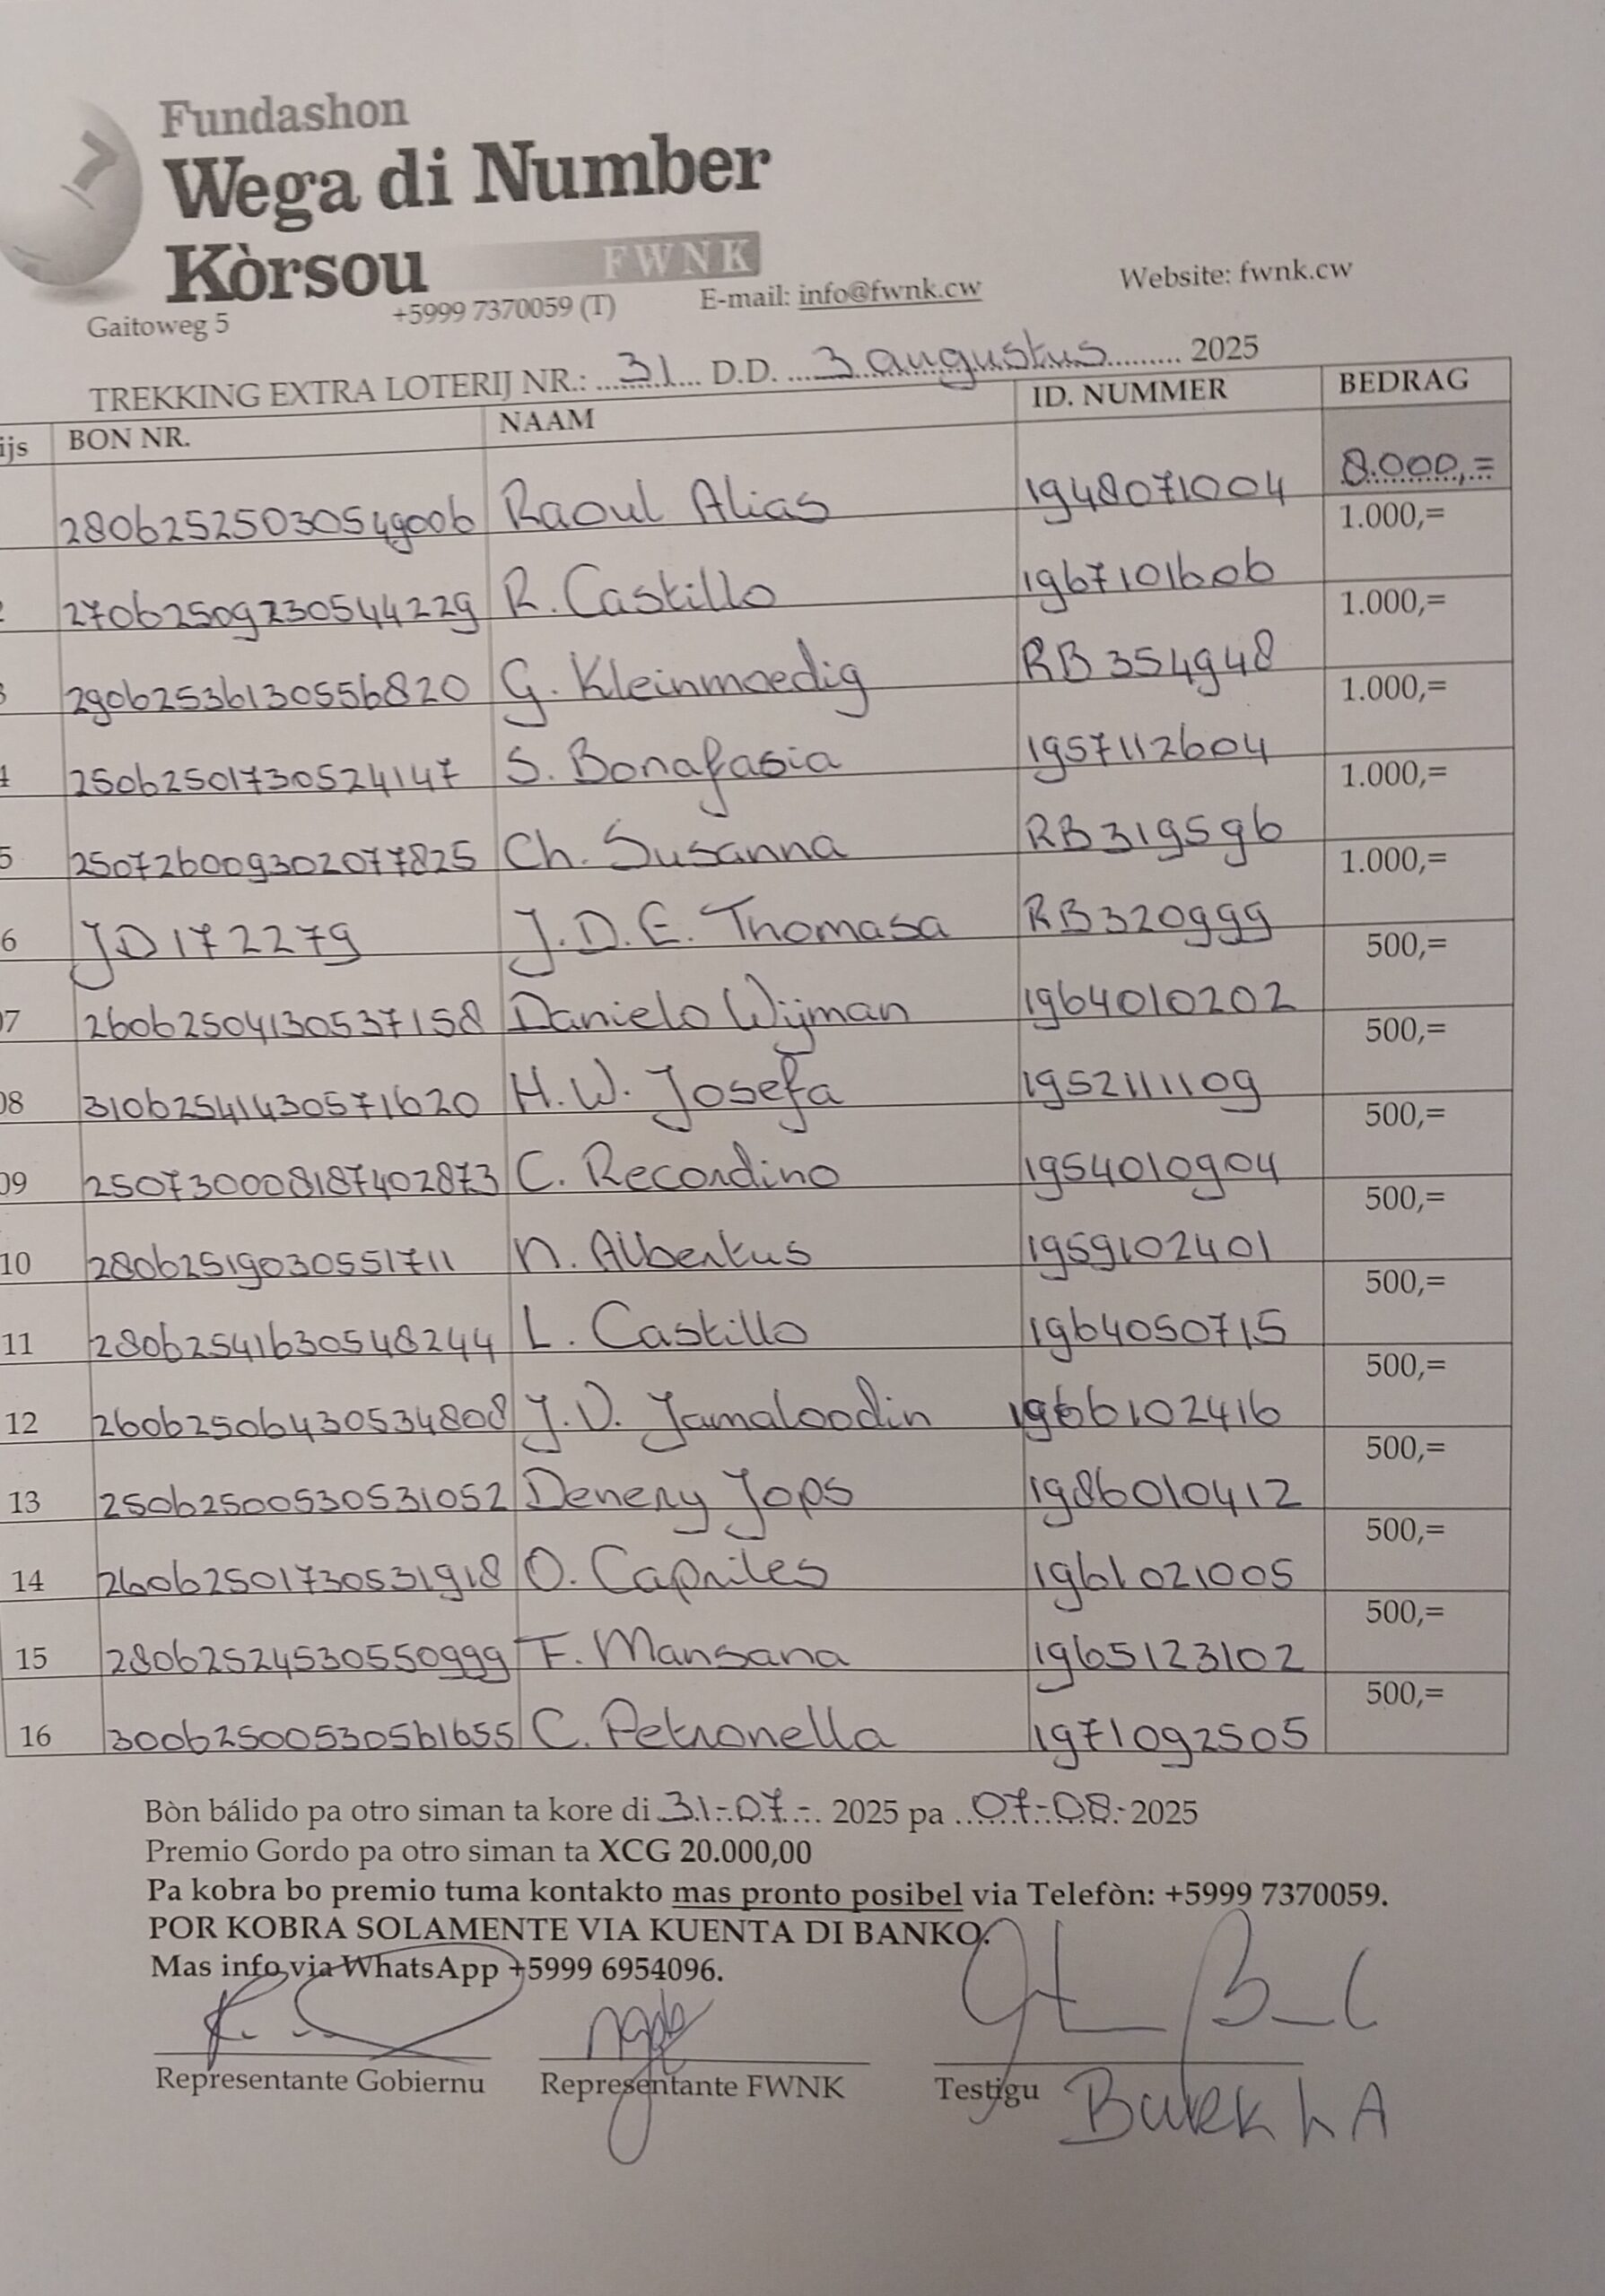 Fundashon
Wega di Number
Kòrsou FWNK
Gaitoweg 5 +5999 7370059 (T) E-mail: info@fwnk.cw Website: fwnk.cw
TREKKING EXTRA LOTERIJ NR.: 31 D.D. 3 augustus 2025
ijs BON NR. NAAM ID. NUMMER BEDRAG
28062525030549006 Raoul Alias 1948071004 8.000,=
2 27062509230544229 R. Castillo 1967101606 1.000,=
3 29062536130556820 G. Kleinmoedig RB354948 1.000,=
4 25062501730524147 S. Bonafasia 1957112604 1.000,=
5 25072600930207 7825 Ch. Susanna RB319596 1.000,=
6 JD172279 J.D.E. Thomasa RB320999 1.000,=
07 26062504130537158 Danielo Wijman 1964010202 500,=
08 31062541430571620 H.W. Josefa 1952111109 500,=
09 250730008187402873 C. Recordino 1954010904 500,=
10 28062519030551711 N. Albertus 1959102401 500,=
11 28062541630548244 L. Castillo 1964050715 500,=
12 26062506430534808 J.D. Jamaloodin 1966102416 500,=
13 25062500530531052 Denery Jops 1986010412 500,=
14 26062501730531918 O. Capriles 1961021005 500,=
15 28062524530550999 F. Mansana 1965123102 500,=
16 30062500530561655 C. Petronella 1971092505 500,=
Bòn bálido pa otro siman ta kore di 31-07- 2025 pa 07-08- 2025
Premio Gordo pa otro siman ta XCG 20.000,00
Pa kobra bo premio tuma kontakto mas pronto posibel via Telefòn: +5999 7370059.
POR KOBRA SOLAMENTE VIA KUENTA DI BANKO.
Mas info via WhatsApp +5999 6954096.
Representante Gobiernu Representante FWNK Testigu